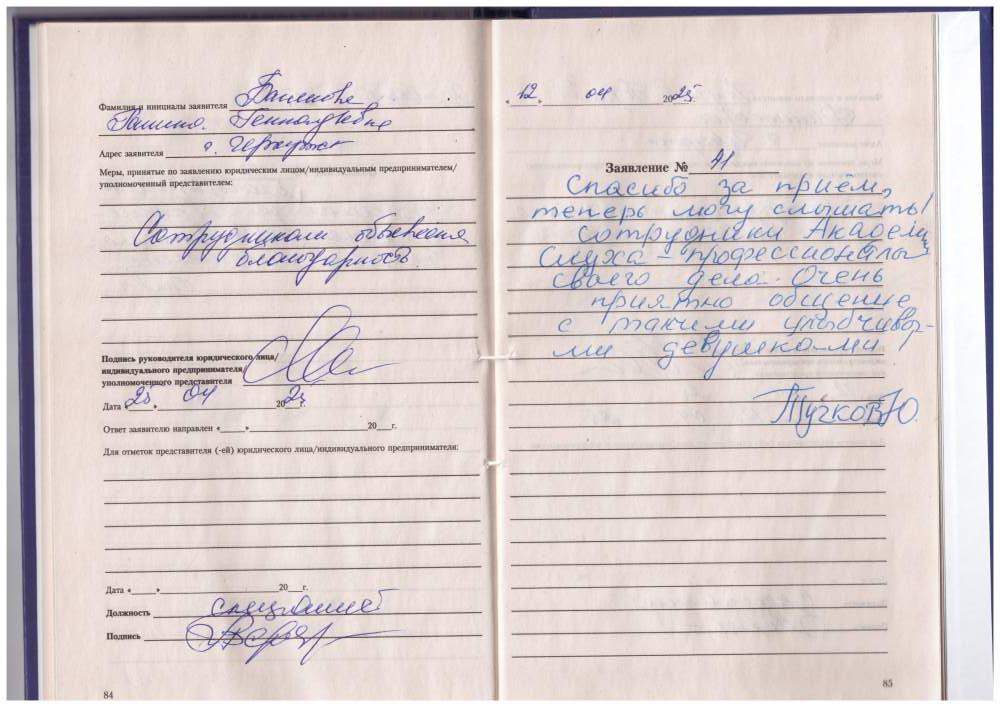 Фамилия и инициалы заявителя
Адрес заявителя г.
Меры, принятые по заявлению юридическим лицом/индивидуальным предпринимателем/
уполномоченный представителем:
Сотрудникам объявлена
благодарность
Подпись руководителя юридического лица/
индивидуального предпринимателя/
уполномоченного представителя
Дата «25» 04 2025г.
Ответ заявителю направлен «_____» 20___г.
Для отметок представителя (-ей) юридического лица/индивидуального предпринимателя:
Дата «_____» 20___г.
Должность специалист
Подпись
84
«12» 04 2025г.
Заявление № 41
Спасибо за приём,
теперь могу слышать!
Сотрудники Академии
Слуха – профессионалы
своего дела. Очень
приятно общение
с такими улыбчивы-
ми девушками
Тучков Ю.
85